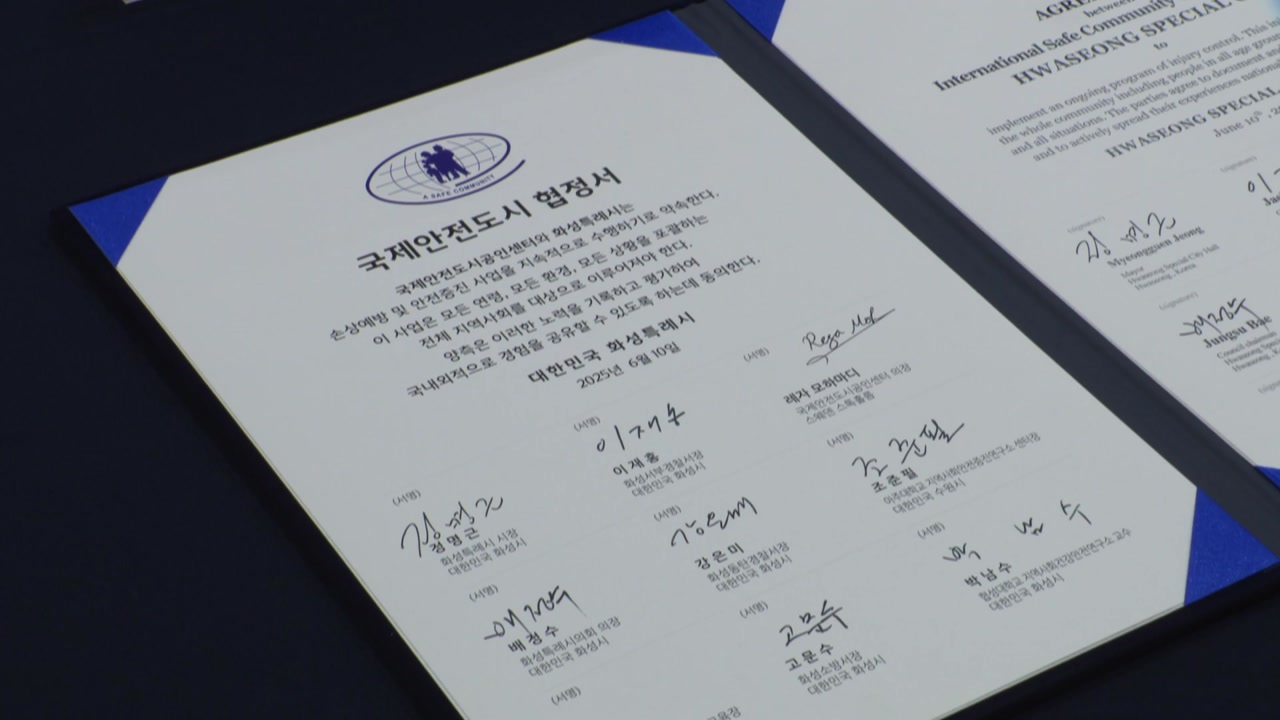 A SAFE COMMUNITY
국제안전도시 협정서
국제안전도시공인센터와 화성특례시는
손상예방 및 안전증진 사업을 지속적으로 수행하기로 약속한다.
이 사업은 모든 연령, 모든 환경, 모든 상황을 포괄하는
전체 지역사회를 대상으로 이루어져야 한다.
양측은 이러한 노력을 기록하고 평가하여
국내외적으로 경험을 공유할 수 있도록 하는데 동의한다.
대한민국 화성특례시
2025년 6월 10일
(서명)
정명근
화성특례시 시장
대한민국 화성시
(서명)
배정수
화성특례시의회 의장
대한민국 화성시
(서명)
(서명)
이재홍
화성서부경찰서장
대한민국 화성시
(서명)
강은미
화성동탄경찰서장
대한민국 화성시
(서명)
고문수
화성소방서장
대한민국 화성시
(서명)
Reza Moh
레자 모하마디
국제안전도시공인센터 의장
스웨덴 스톡홀름
(서명)
조준필
아주대학교 지역사회안전증진연구소 센터장
대한민국 수원시
(서명)
박남수
협성대학교 지역사회건강안전연구소 교수
대한민국 화성시
between
International Safe Community
HWASEONG SPECIAL
to
implement an ongoing program of injury control. This
the whole community including people in all age
and all situations. The parties agree to document and
and to actively spread their experiences
HWASEONG SPECIAL
June 10th, 2
(signature)
Myeongguen Jeong
Mayor
Hwaseong Special City Hall
Hwaseong, Korea
(signature)
Jungsu Bae
Council
Hwaseong